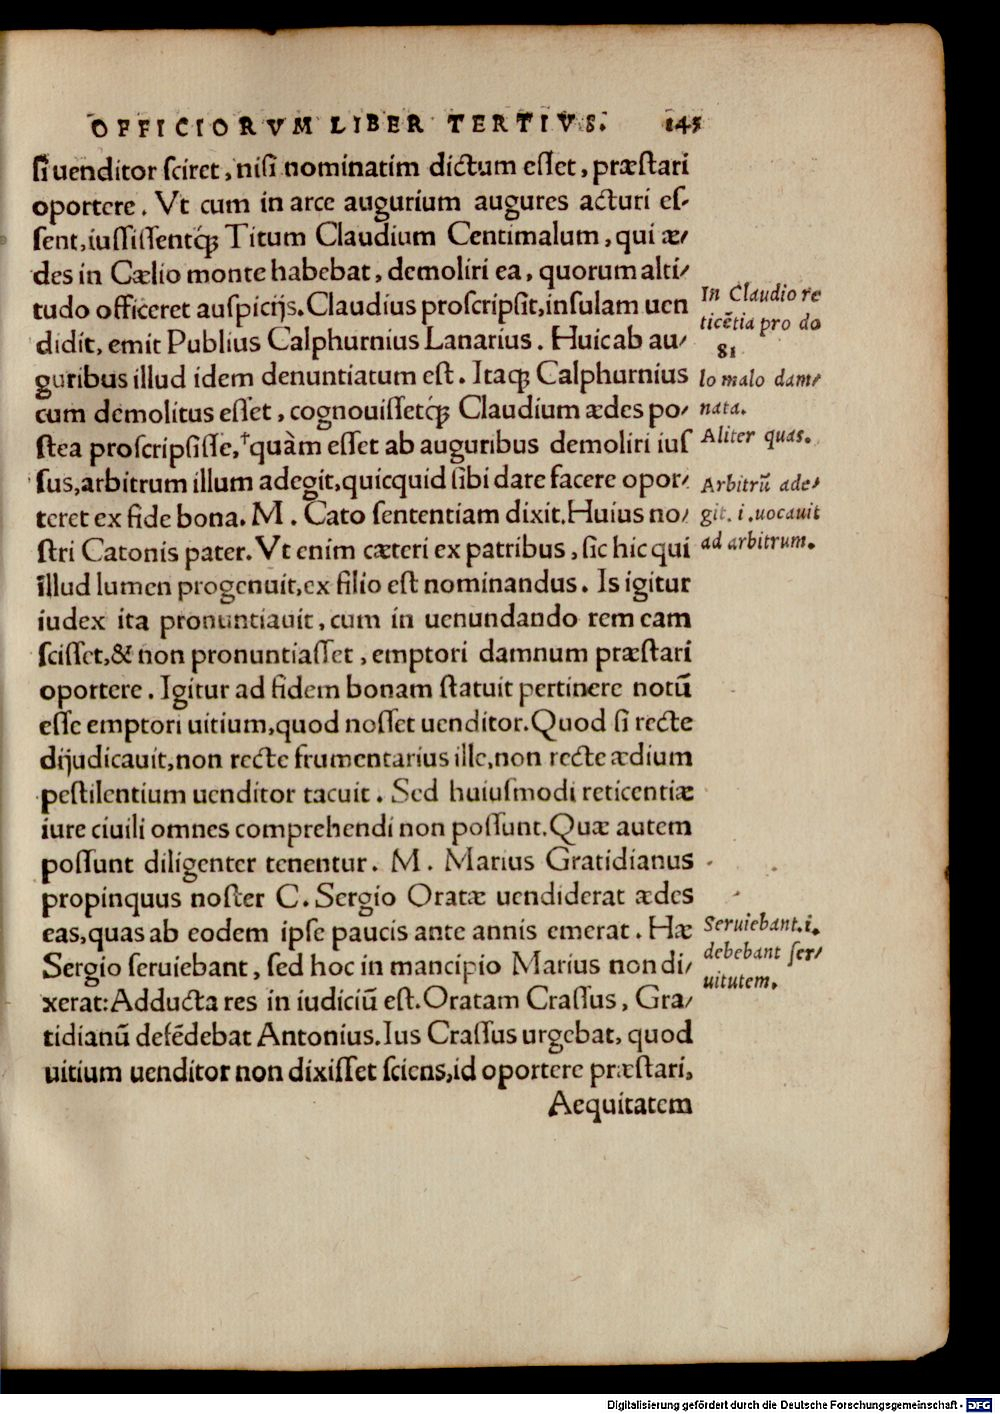 OFFICIORVM LIBER TERTIVS. 145
ſi uenditor ſciret, niſi nominatim dictum eſſet, præſtari
oportere. Vt cum in arce augurium augures acturi eſ-
ſent, iuſſiſſentq́ꝫ Titum Claudium Centimalum, qui æ/
des in Cælio monte habebat, demoliri ea, quorum alti/
tudo officeret auſpicijs. Claudius proſcripſit, inſulam uen
didit, emit Publius Calphurnius Lanarius. Huic ab au/
guribus illud idem denuntiatum eſt. Itaqꝫ Calphurnius
cum demolitus eſſet, cognouiſſetq́ꝫ Claudium ædes po/
ſtea proſcripſiſſe, †quàm eſſet ab auguribus demoliri iuſ
ſus, arbitrum illum adegit, quicquid ſibi dare facere opor/
teret ex fide bona. M. Cato ſententiam dixit. Huius no/
ſtri Catonis pater. Vt enim cæteri ex patribus, ſic hic qui
illud lumen progenuit, ex filio eſt nominandus. Is igitur
iudex ita pronuntiauit, cum in uenundando rem eam
ſciſſet, & non pronuntiaſſet, emptori damnum præſtari
oportere. Igitur ad fidem bonam ſtatuit pertinere notū
eſſe emptori uitium, quod noſſet uenditor. Quod ſi recte
dijudicauit, non recte frumentarius ille, non recte ædium
peſtilentium uenditor tacuit. Sed huiuſmodi reticentiæ
iure ciuili omnes comprehendi non poſſunt. Quæ autem
poſſunt diligenter tenentur. M. Marius Gratidianus
propinquus noſter C. Sergio Oratæ uendiderat ædes
eas, quas ab eodem ipſe paucis ante annis emerat. Hæ
Sergio ſeruiebant, ſed hoc in mancipio Marius non di/
xerat: Adducta res in iudiciū eſt. Oratam Craſſus, Gra/
tidianū defēdebat Antonius. Ius Craſſus urgebat, quod
uitium uenditor non dixiſſet ſciens, id oportere præſtari,
Aequitatem
In Claudio re
ticētia pro do
81
lo malo dam/
nata.
Aliter quas.
Arbitrū ade/
git. i. uocauit
ad arbitrum.
Seruiebant. i.
debebant ſer/
uitutem.
Digitalisierung gefördert durch die Deutsche Forschungsgemeinschaft - DFG